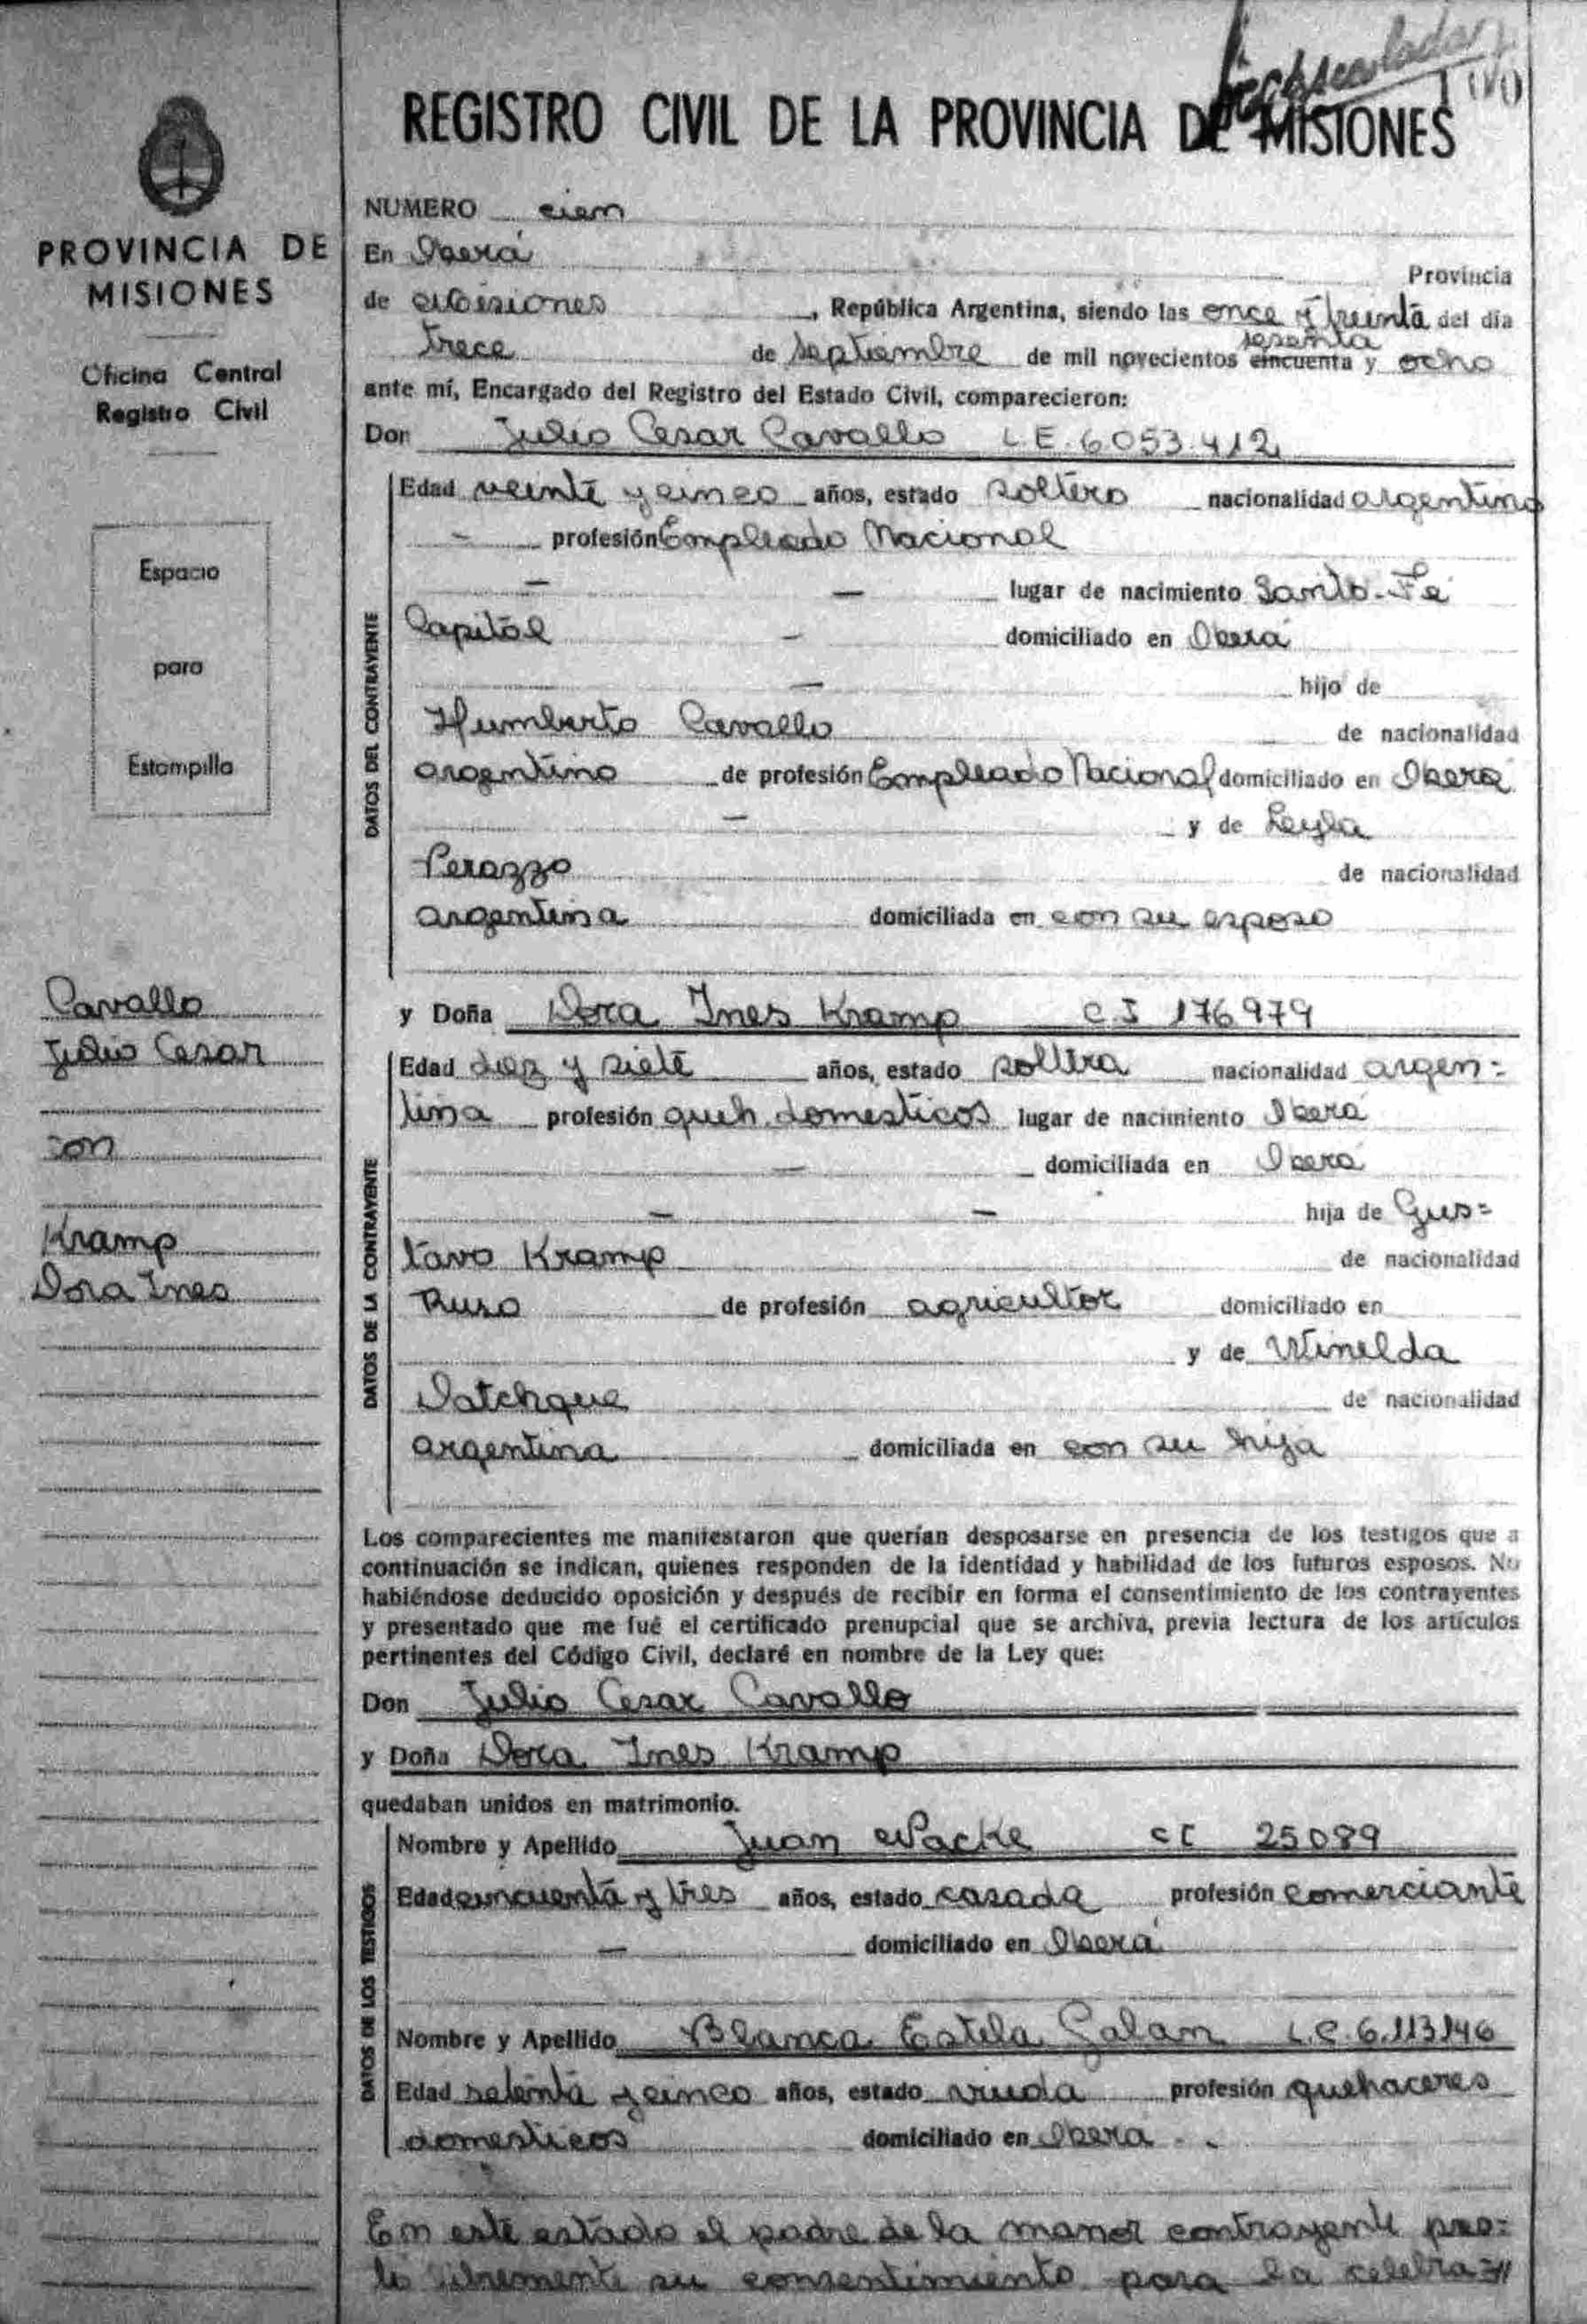 REGISTRO CIVIL DE LA PROVINCIA DE MISIONES
100
PROVINCIA DE
MISIONES
Oficina Central
Registro Civil
Espacio
para
Estampilla
Cavallo
Julio Cesar
con
Kramp
Dora Ines
NUMERO cien
En Oberá
Provincia
de Misiones, República Argentina, siendo las once y treinta del día
sesenta
trece de septiembre de mil novecientos cincuenta y ocho
ante mí, Encargado del Registro del Estado Civil, comparecieron:
Don Julio Cesar Cavallo L E. 6053.412
DATOS DEL CONTRAYENTE
Edad veinte y cinco años, estado soltero nacionalidad argentino
- profesión Empleado Nacional
- - lugar de nacimiento Santo-Fe
Capital - domiciliado en Oberá
- hijo de
Humberto Cavallo de nacionalidad
argentino de profesión Empleado Nacional domiciliado en Oberá
- y de Leyla
Perazzo de nacionalidad
argentina domiciliada en con su esposo
y Doña Dora Ines Kramp C I 176979
DATOS DE LA CONTRAYENTE
Edad diez y siete años, estado soltera nacionalidad argen=
tina profesión queh. domesticos lugar de nacimiento Oberá
- domiciliada en Oberá
- - hija de Gus=
tavo Kramp de nacionalidad
Ruso de profesión agricultor domiciliado en
y de Winelda
Datchque de nacionalidad
argentina domiciliada en con su hija
Los comparecientes me manifestaron que querían desposarse en presencia de los testigos que a
continuación se indican, quienes responden de la identidad y habilidad de los futuros esposos. No
habiéndose deducido oposición y después de recibir en forma el consentimiento de los contrayentes
y presentado que me fué el certificado prenupcial que se archiva, previa lectura de los artículos
pertinentes del Código Civil, declaré en nombre de la Ley que:
Don Julio Cesar Cavallo
y Doña Dora Ines Kramp
quedaban unidos en matrimonio.
DATOS DE LOS TESTIGOS
Nombre y Apellido Juan Packe CI 25089
Edad cincuenta y tres años, estado casada profesión comerciante
- domiciliado en Oberá
Nombre y Apellido Blanca Estela Galan L.C. 6.113146
Edad setenta y cinco años, estado viuda profesión quehaceres
domesticos domiciliado en Oberá - -
En este estado el padre de la menor contrayente pres=
to libremente su consentimiento para la celebra=